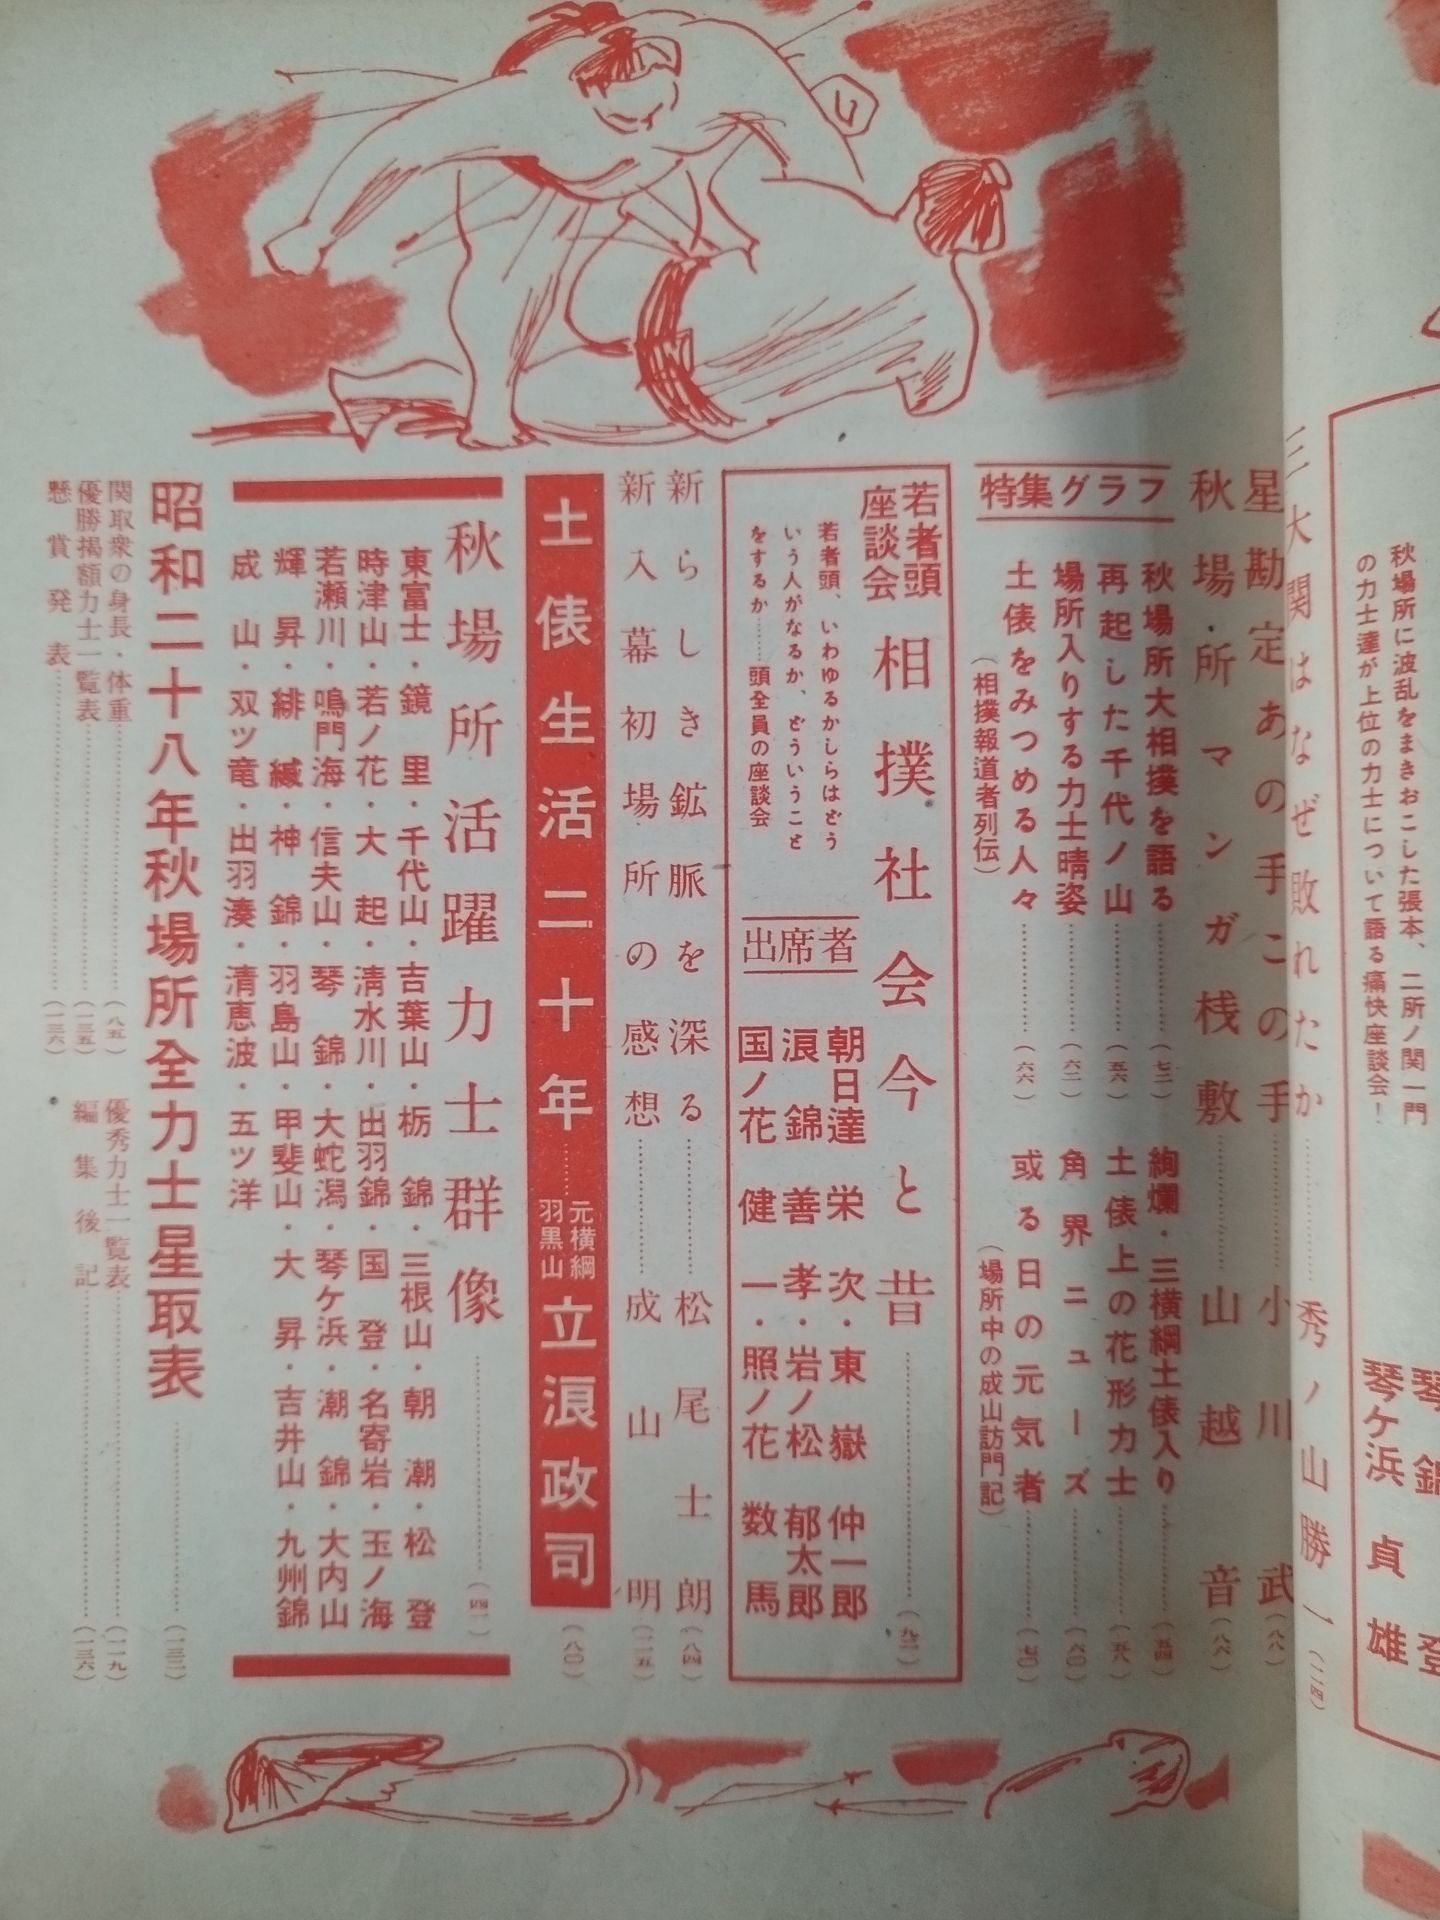 秋場所に波乱をまきおこした張本、二所ノ関一門
の力士達が上位の力士について語る痛快座談会！
琴ケ浜 貞雄
三大関はなぜ敗れたか…………秀ノ山勝一（二四）
星勘定あの手この手………小川武（八八）
秋場所マンガ桟敷………山越音（八六）
特集グラフ
秋場所大相撲を語る…………（七二）
再起した千代ノ山…………（五六）
場所入りする力士晴姿…………（六二）
土俵をみつめる人々…………（六六）
（相撲報道者列伝）
絢爛・三横綱土俵入り…………（五四）
土俵上の花形力士…………（五八）
角界ニューズ…………（六〇）
或る日の元気者…………（七〇）
（場所中の成山訪門記）
若者頭
座談会
相撲社会今と昔…………（九二）
若者頭、いわゆるかしらはどう
いう人がなるか、どういうこと
をするか……頭全員の座談会
出席者
朝日達栄次・東嶽仲一郎
浪錦善孝・岩ノ松郁太郎
国ノ花健一・照ノ花数馬
新らしき鉱脈を深る…………松尾士朗（八四）
新入幕初場所の感想…………成山明（一一五）
土俵生活二十年……元横綱羽黒山 立浪政司（八〇）
秋場所活躍力士群像…………（四一）
東富士・鏡里・千代山・吉葉山・栃錦・三根山・朝潮・松登
時津山・若ノ花・大起・清水川・出羽錦・国登・名寄岩・玉ノ海
若瀬川・鳴門海・信夫山・琴錦・大蛇潟・琴ケ浜・潮錦・大内山
輝昇・緋縅・神錦・羽島山・甲斐山・大昇・吉井山・九州錦
成山・双ツ竜・出羽湊・清恵波・五ツ洋
昭和二十八年秋場所全力士星取表…………（一三二）
関取衆の身長・体重…………（八五）
優勝掲額力士一覧表…………（一三五）
懸賞発表…………（一三六）
優秀力士一覧表…………（一一九）
編集後記…………（一三六）